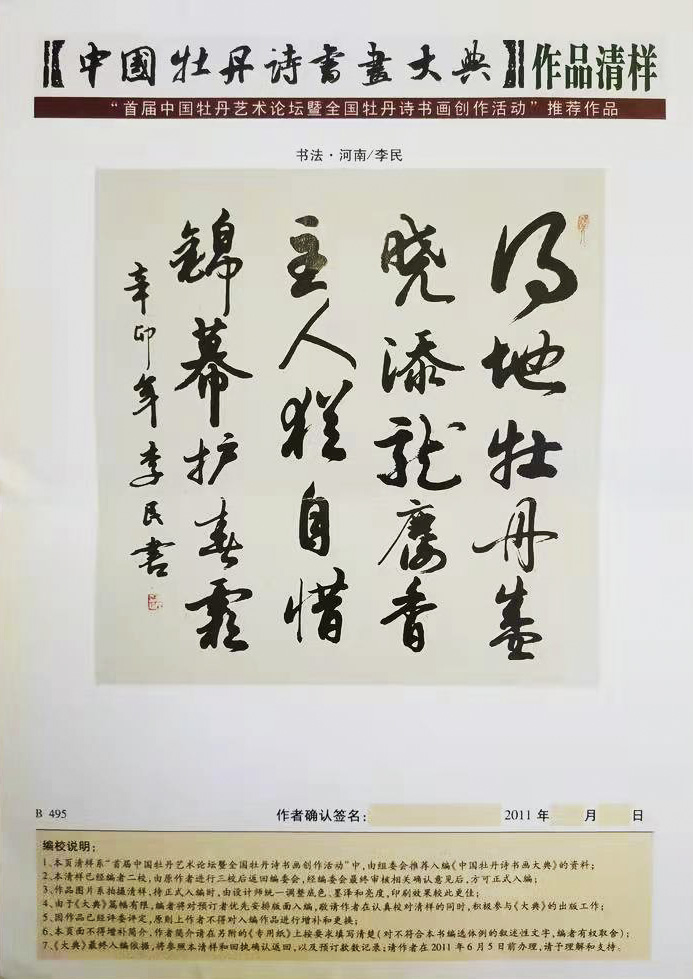 【中國牡丹诗書畫大典】作品清样
“首届中国牡丹艺术论坛暨全国牡丹诗书画创作活动”推荐作品
书法·河南/李民
得地牡丹盛
晓添龙麝香
主人猶自惜
錦幕护春霜
辛卯年李民書
B 495
作者确认签名： 2011 年 月 日
编校说明：
1、本页清样系“首届中国牡丹艺术论坛暨全国牡丹诗书画创作活动”中，由组委会推荐入编《中国牡丹诗书画大典》的资料；
2、本清样已经编者二校，由原作者进行三校后返回编委会，经编委会最终审核相关确认意见后，方可正式入编；
3、作品图片系拍摄清样，待正式入编时，由设计师统一调整底色、墨泽和亮度，印刷效果较此更佳；
4、由于《大典》篇幅有限，编者将对预订者优先安排版面入编，敬请作者在认真校对清样的同时，积极参与《大典》的出版工作；
5、因作品已经评委评定，原则上作者不得对入编作品进行增补和更换；
6、本页面不得增补简介，作者简介请在另附的《专用纸》上按要求填写清楚（对不符合本书编选体例的叙述性文字，编者有权取舍）；
7、《大典》最终入编依据，将参照本清样和回执确认返回，以及预订款数记录；请作者在 2011 年 6 月 5 日前办理，请予理解和支持。